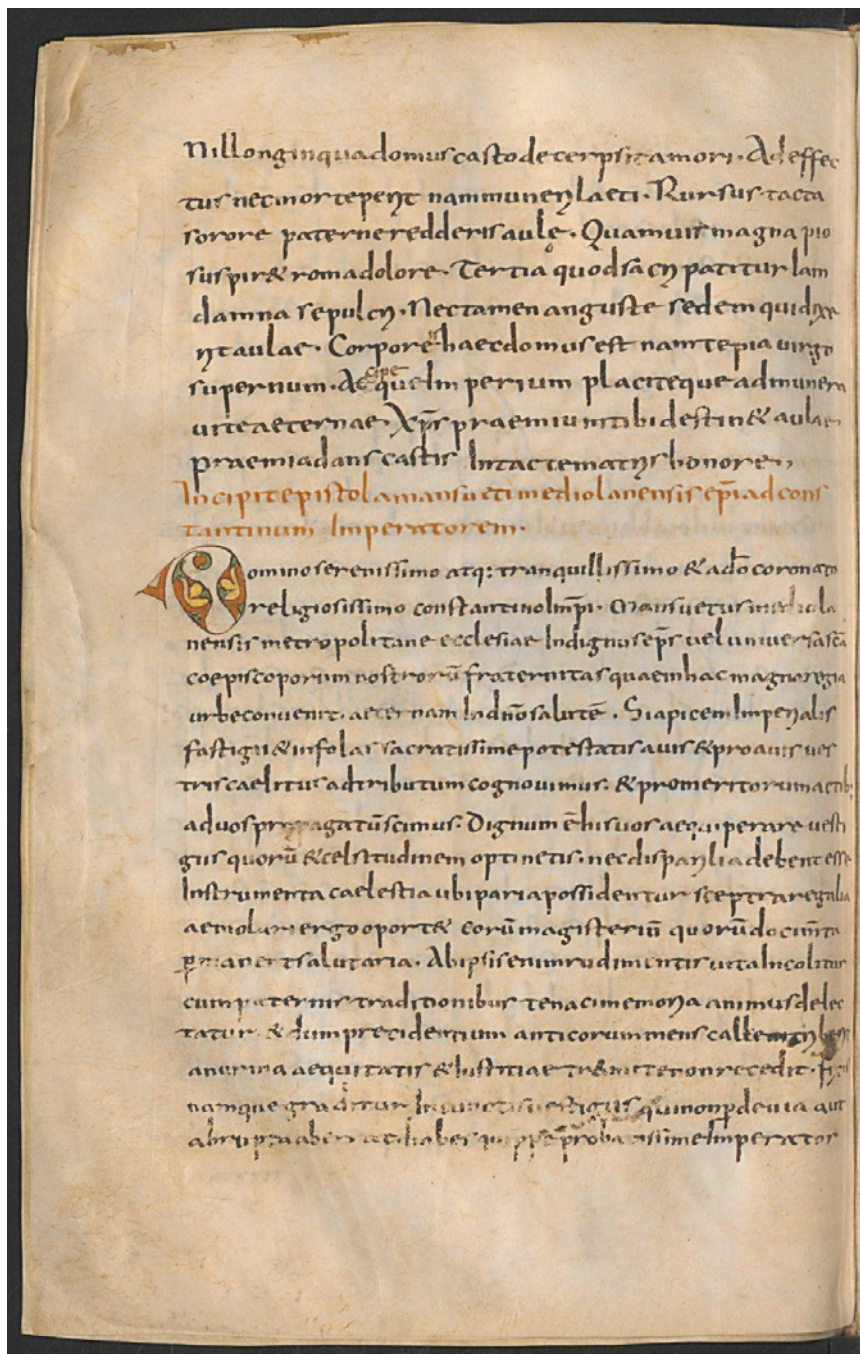 Nil longinqua domus casto decerpsit amori. Ad effec
tus nec morte perit nam munery laeti. Rursus tacta
sorore paterne redderis aule. Quamuis magna pio
suspir& roma dolore. Tertia quod sacry patitur lam
damna sepulcri. Nec tamen anguste sedem quid
aulae. Corpore haec domus est nam te pia uirgo
supernum. Accipe que Imperium placiteque ad munera
uite aeternae. Xps praemium tibi destin& aulae
praemia dans castis Intacte matris honore
Incipit epistola mansueti mediolanensis epi ad cons
tantinum Imperatorem.
Domino serenissimo atq: tranquillissimo & a do coronato
religiosissimo constantino Impr. Mansuetus mediola
nensis metropolitane ecclesiae Indignus eps uel uniuersa sca
coepiscoporum nostroru fraternitas quae in hac magna regia
urbe conuenit. aeternam In dno salute. Si apicem Imperialis
fastigii & infolas sacratissime potestatis auis & proauis ues
tris caelitus adtributum cognouimus. & pro meritorum actib;
ad uos propagatu scimus. Dignum e his uos aequiperare uesti
giis quoru & celsitudinem optinetis. nec disparilia debent esse
Instrumenta caelestia ubi paria possidentur sceptra regalia
aemolari ergo oport& coru magisteriu quoru documta
pmanent salutaria. Ab ipsis enim rudimentis uita Incolitur
cum paternis traditionibus tenaci memoria animus delec
tatur. & dum precidentium anticorum mens calle
anurma aequitatis & Iustitiae tramite non recedit.
namque graditur In uestigiis qui non p deuia aut
abrupta aberrat. habes quippe probatissime Imperator